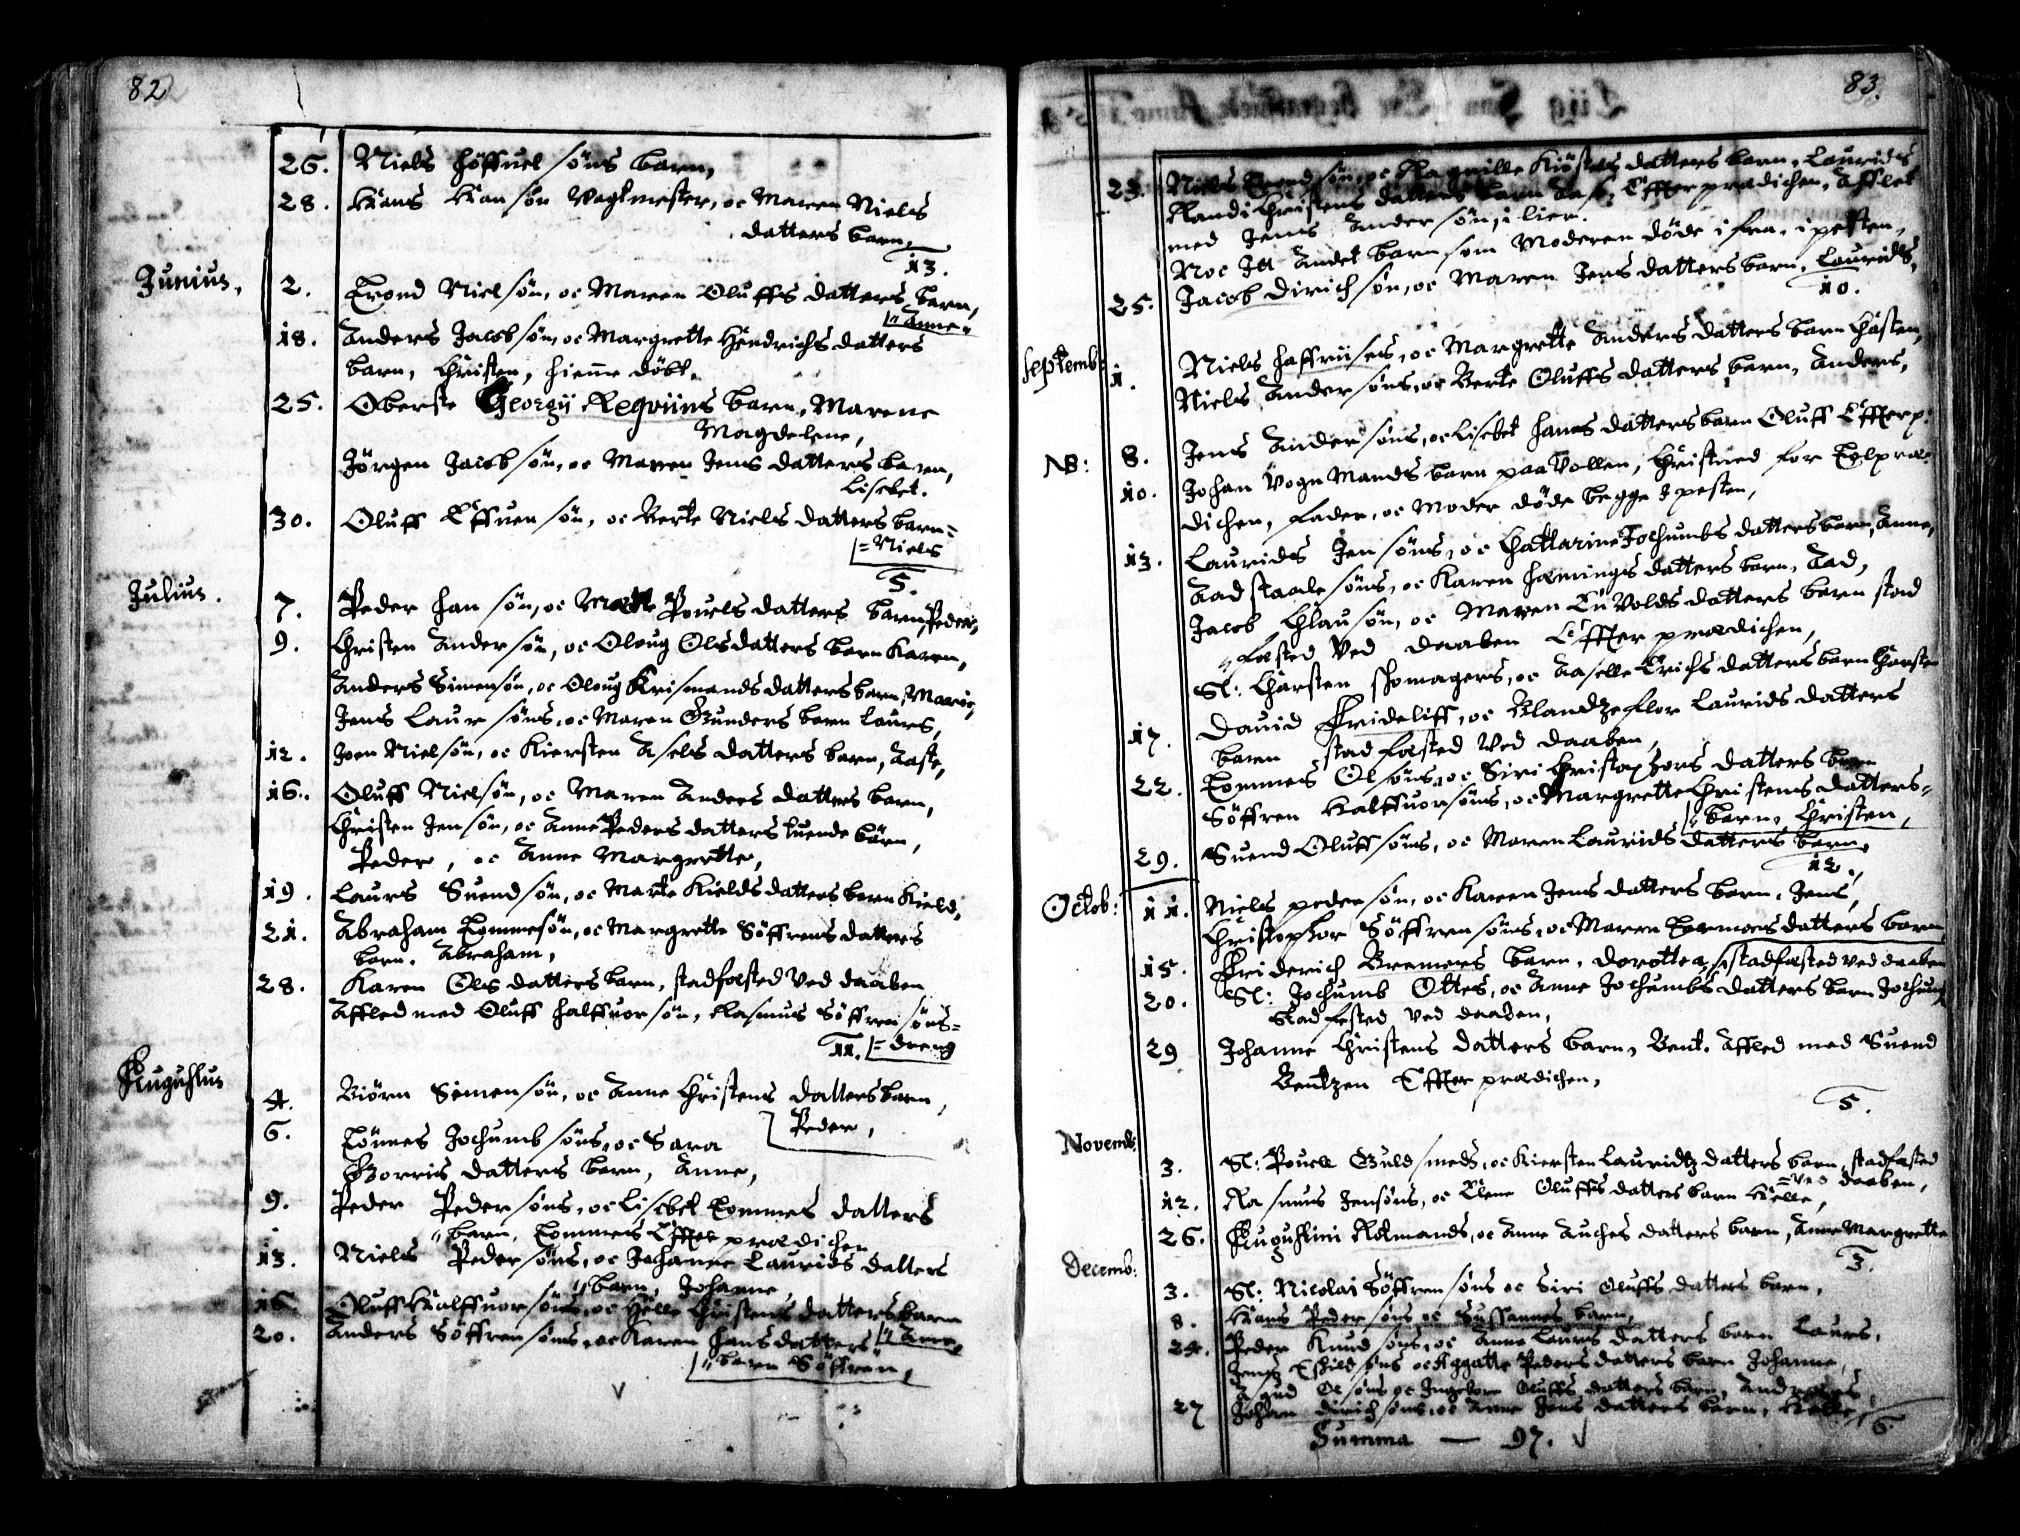 82
26. Niels Höffuel söns barn,
28. Hans Hansön Vagtmester, oc Maren Niels
datters barn,
13.
Junius.
2. Trond Nielsön, oc Maren Oluffs datters barn,
Anne.
18. Anders Jacobsön, oc Margrette Hendrichs datters
barn, Christen, hieme döbt.
25. Oberste Georgii Reqviins barn, Marene
Magdelene,
Jörgen Jacobsön, oc Maren Jens datters barn,
Lisebet.
30. Oluff Effuensön, oc Berte Niels datters barn=
=Niels
5.
Julius.
7. Peder Hansön, oc Mette Pouels datters barn, Peder,
9. Christen Andersön, oc Oloug Olsdatters barn Karen,
Anders Simensön, oc Oloug Krismands datters barn, Marie,
Jens Laursöns, oc Maren Gunders barn Laurs,
12. Joen Nielsön, oc Kiersten Asels datters barn, Aase,
16. Oluff Nielsön, oc Maren Anders datters barn,
Christen Jensön, oc Anne Peders datters tuende börn,
Peder, oc Anne Margrette,
19. Laurs Suendsön, oc Marte Kields datters barn Kield,
21. Abraham Tommesön, oc Margrette Söffrens datters
barn. Abraham,
28. Karen Ols datters barn, stadfæsted ved daaben
Affled med Oluff Halffuorsön, Rasmus Söffrensöns=
=dreng
11.
Augustus
4. Biörn Simensön, oc Anne Christens datters barn,
Peder,
6. Tönnes Jochumbsöns, oc Sara
Gorris datters barn, Anne,
9. Peder Pedersöns, oc Lisebet Tommes datters
barn, Tommes Effter prædichen
13. Niels Pedersöns, oc Johanne Laurids datters
barn, Johanne,
16. Oluff Halffuorsöns, oc Helle Christens datters barn
Anne,
20. Anders Söffrensöns, oc Karen Hans datters
barn Söffren,
83.
23. Niels Trondsön, oc Ragnille Kiöstels datters barn, Laurids
Randi Christens datters barn Aase, Effter prædichen, Afflet
med Jens Andersön, i Lier.
Noc Itt Andet barn som Moderen döde i fra, i pesten,
25. Jacob Dirichsön, oc Maren Jens datters barn, Laurids,
10.
Septemb:
1. Niels Haffruisens, oc Margrette Anders datters barn Casten,
Niels Andersöns, oc Berte Oluffs datters barn, Anders,
8. Jens Andersöns, oc Lisebet Hans datters barn Oluff Effterp:
NB:
10. Johan Vogn Mands barn paa Vollen, Christned for Tolpræ=
dichen, Fader, oc Moder döde begge I pesten,
13. Laurids Jensöns, oc Chattarine Jochumbs datters barn, Anne,
Aad staalesöns, oc Karen Hemings datters barn, Aad,
Jacob Clausön, oc Maren Enuolds datters barn stad
fæsted Ved daaben Effter prædichen,
Sl: Carsten skomagers, oc Aaselle Erichs datters barn Carsten
17. Dauid Frideliff, oc Blandzeflor Laurids datters
barn stadfæsted Ved daaben,
22. Tommes Olsöns, oc Siri Christophors datters barn
Söffren Halffuorsöns, oc Margrette Christens datters=
barn, Christen,
29. Suend Oluffsöns, oc Maren Laurids datters barn,
12.
Octob:
11. Niels pedersön, oc Karen Jens datters barn, Jens,
Christophor Söffrensöns, oc Maren Tormons datters barn
15. Friderich Bremers barn, Dorottea, stadfæsted ved daaben
20. Sl: Jochumb Ottes, oc Anne Jochumbs datters barn Jochum,
Stadfested ved daaben,
29 Johanne Christens datters barn, Bent. Affled med Suend
Bentzen Effter prædichen,
5.
Novemb:
3. Sl: Pouell Guldsmeds, oc Kiersten Lauridtz datters barn, stadfæsted
=ved daaben,
12. Rasmus Jensöns, oc Elene Oluffs datters barn Helle,
26. Augustini Rotmands, oc Anne Auches datters barn, Anne Margrette
3.
Decemb:
3. Sl: Nicolai Söffrensöns oc Siri Oluffs datters barn,
8. Hans Pedersöns oc Sussannes barn,
24. Peder Knudsöns, oc Anne Laurs datters barn Laurs,
Jens Eskildsöns oc Aggatte Peders datters barn Johanne,
Asgud Olsöns oc Ingebor Oluffs datters barn, Andreas,
27 Johan Dirichsöns, oc Anne Jens datters barn, Helle,
6.
Summa — 97.